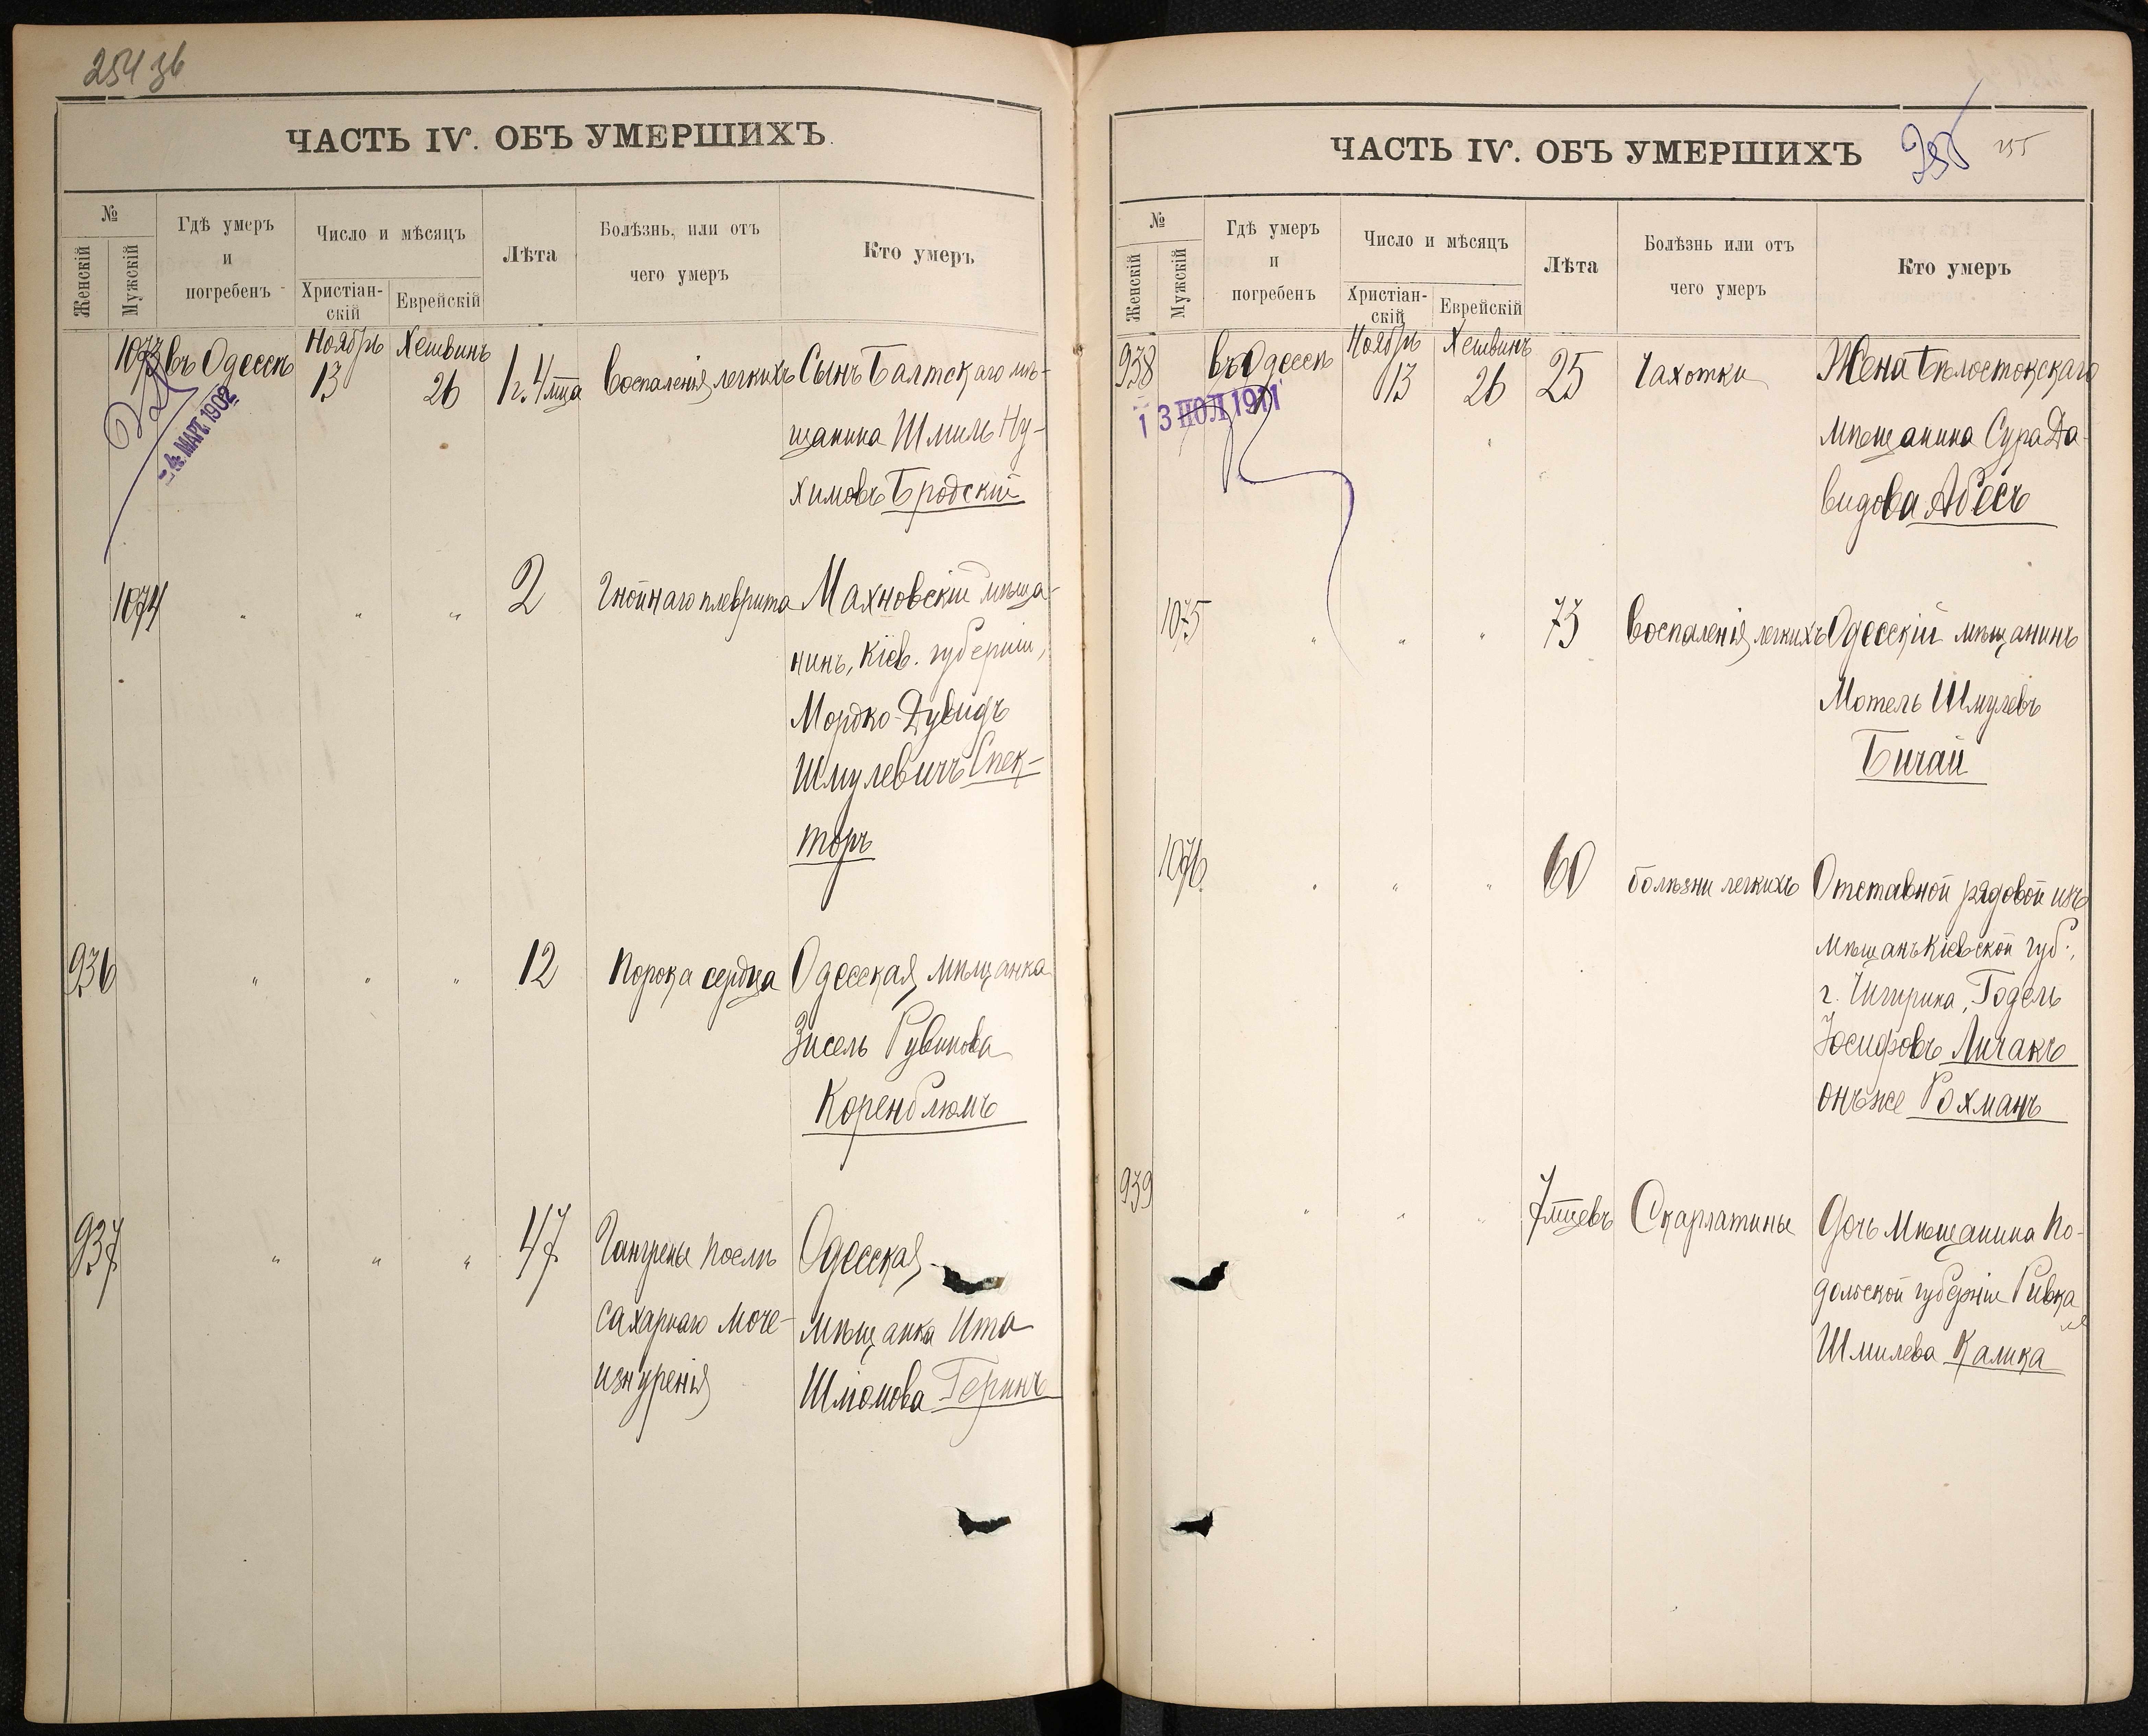 254 зв
ЧАСТЬ IV. ОБЪ УМЕРШИХЪ.
№
Женскій
Мужскій
Гдѣ умеръ
и
погребенъ
Число и мѣсяцъ
Христіан-
скій
Еврейскій
Лѣта
Болѣзнь, или отъ
чего умеръ
Кто умеръ
Ноябрь Хешвинъ
1073 въ Одессѣ 13 26 1 г. 4 мца Воспаленія легкихъ Сынъ Балтскаго мѣ-
щанина Шмиль Ну-
химовъ Бродскій
- 4. МАРТ. 1902
1074 " " " 2 Гнойнаго плеврита Махновскій мѣща-
нинъ, Кіев. губерніи,
Мордко-Дувидъ
Шмулевичъ Спек-
торъ
936 " " " 12 Порока сердца Одесская мѣщанка
Зисель Рувинова
Коренблюмъ
937 " " " 47 Гангрены послѣ Одесская
сахарнаго моче- мѣщанка Ита
изнуренія Шломова Геринъ
ЧАСТЬ IV. ОБЪ УМЕРШИХЪ
255 255
№
Женскій
Мужскій
Гдѣ умеръ
и
погребенъ
Число и мѣсяцъ
Христіан-
скій
Еврейскій
Лѣта
Болѣзнь или отъ
чего умеръ
Кто умеръ
Ноябрь Хешвинъ
938 въ Одессѣ 13 26 25 Чахотки Жена Бѣлостокскаго
мѣщанина Сура Да-
видова Абесъ
1 3 ИЮЛ 1911
1075 " " " 73 Воспаленія легкихъ Одесскій мѣщанинъ
Мотель Шмулевъ
Бичай
1076 " " " 60 болѣзни легкихъ Отставной рядовой изъ
мѣщанъ Кіевской губ.,
г. Чигирина, Годель
Іосифовъ Личакъ
онъ же Рохманъ
939 " " " 7 мцевъ Скарлатины Дочь мѣщанина По-
дольской губерніи Ривка
Шмилева Калика